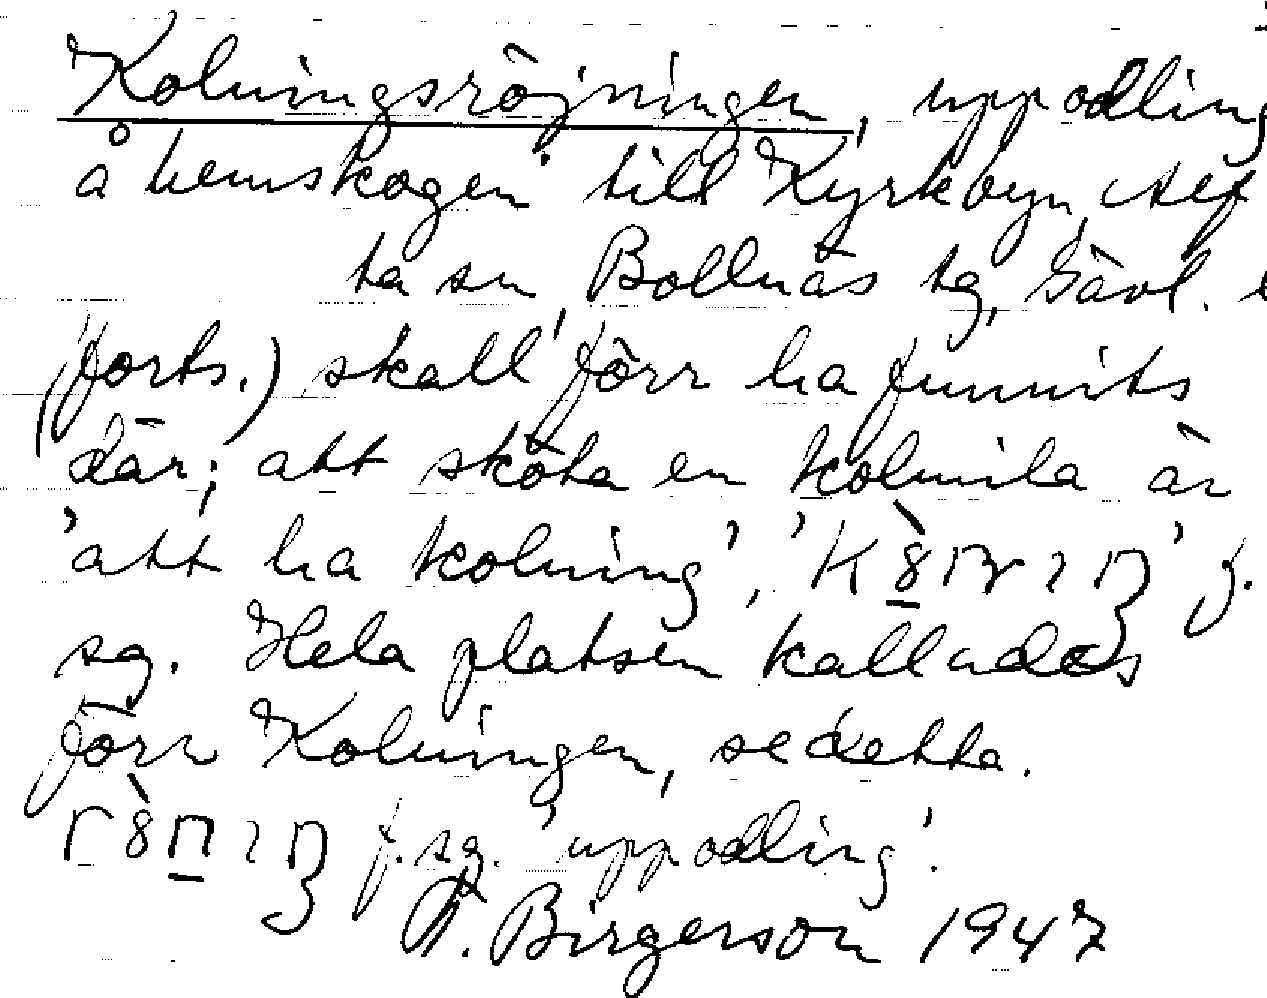 Kolningsröjningen, uppodling
å hemskogen till Kyrkbyn, Alf
ta sn, Bollnäs tg, Gävl. l
(forts.) skall förr ha funnits
där; att sköta en kolmila är
'att ha kolning', f.
sg. Hela platsen kallades
förr Kolningen, se detta.
f. sg. 'uppodling'.
Birgerson 1947